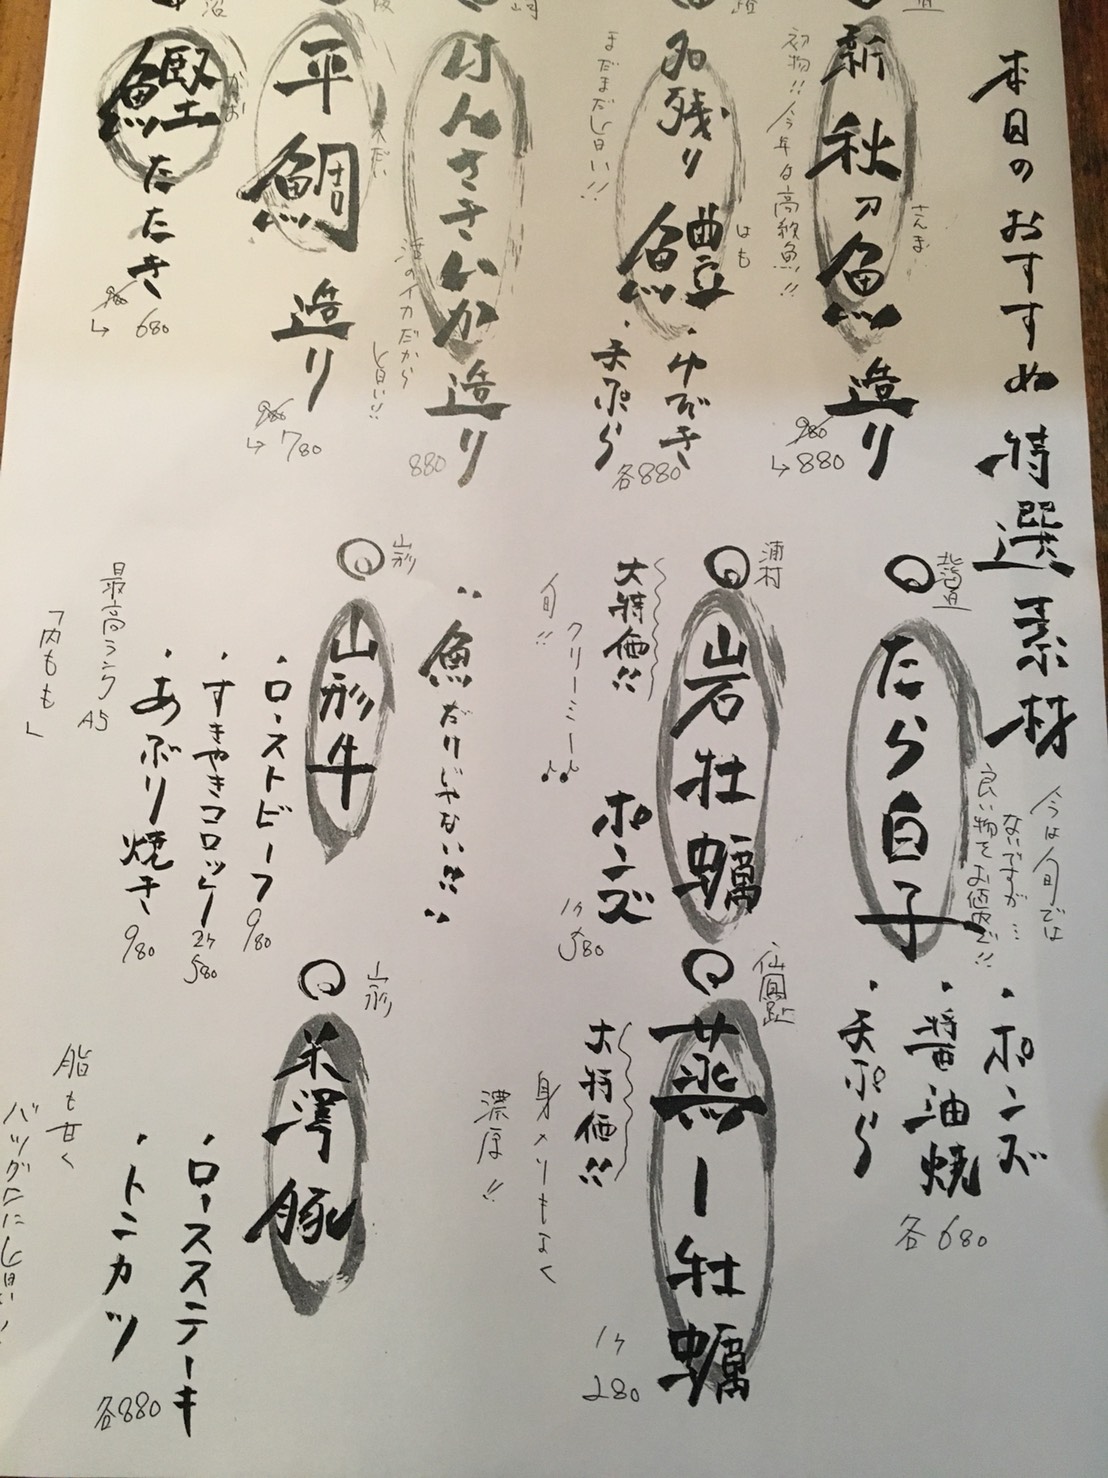 本日のおすすめ 特選素材
新秋刀魚造り
さんま
初物!! 今年も高級魚!!
980
↳ 880
名残り鱧
はも
まだまだ旨い!!
・ゆびき
・天ぷら
各880
けんさきいか造り
海のイカだから
旨い!!
880
平鯛造り
980
↳ 780
鰹たたき
かつお
980
↳ 680
北海道
たら白子
今は旬では
ないですが…
良い物をお値打で!!
・ポンズ
・醤油焼
・天ぷら
各680
浦村
岩牡蠣
大特価!!
旬!!
クリーミー♪♪
ポンズ
1ケ
580
仙鳳趾
蒸し牡蠣
大特価!!
身入りもよく
濃厚!!
1ケ
280
"魚だけじゃない!!"
山形
山形牛
・ローストビーフ 980
・すきやきコロッケ 2ケ 580
・あぶり焼き 980
最高ランクA5
「内もも」
山形
米澤豚
・ロースステーキ
・トンカツ
各880
脂も甘く
バツグンに旨い!